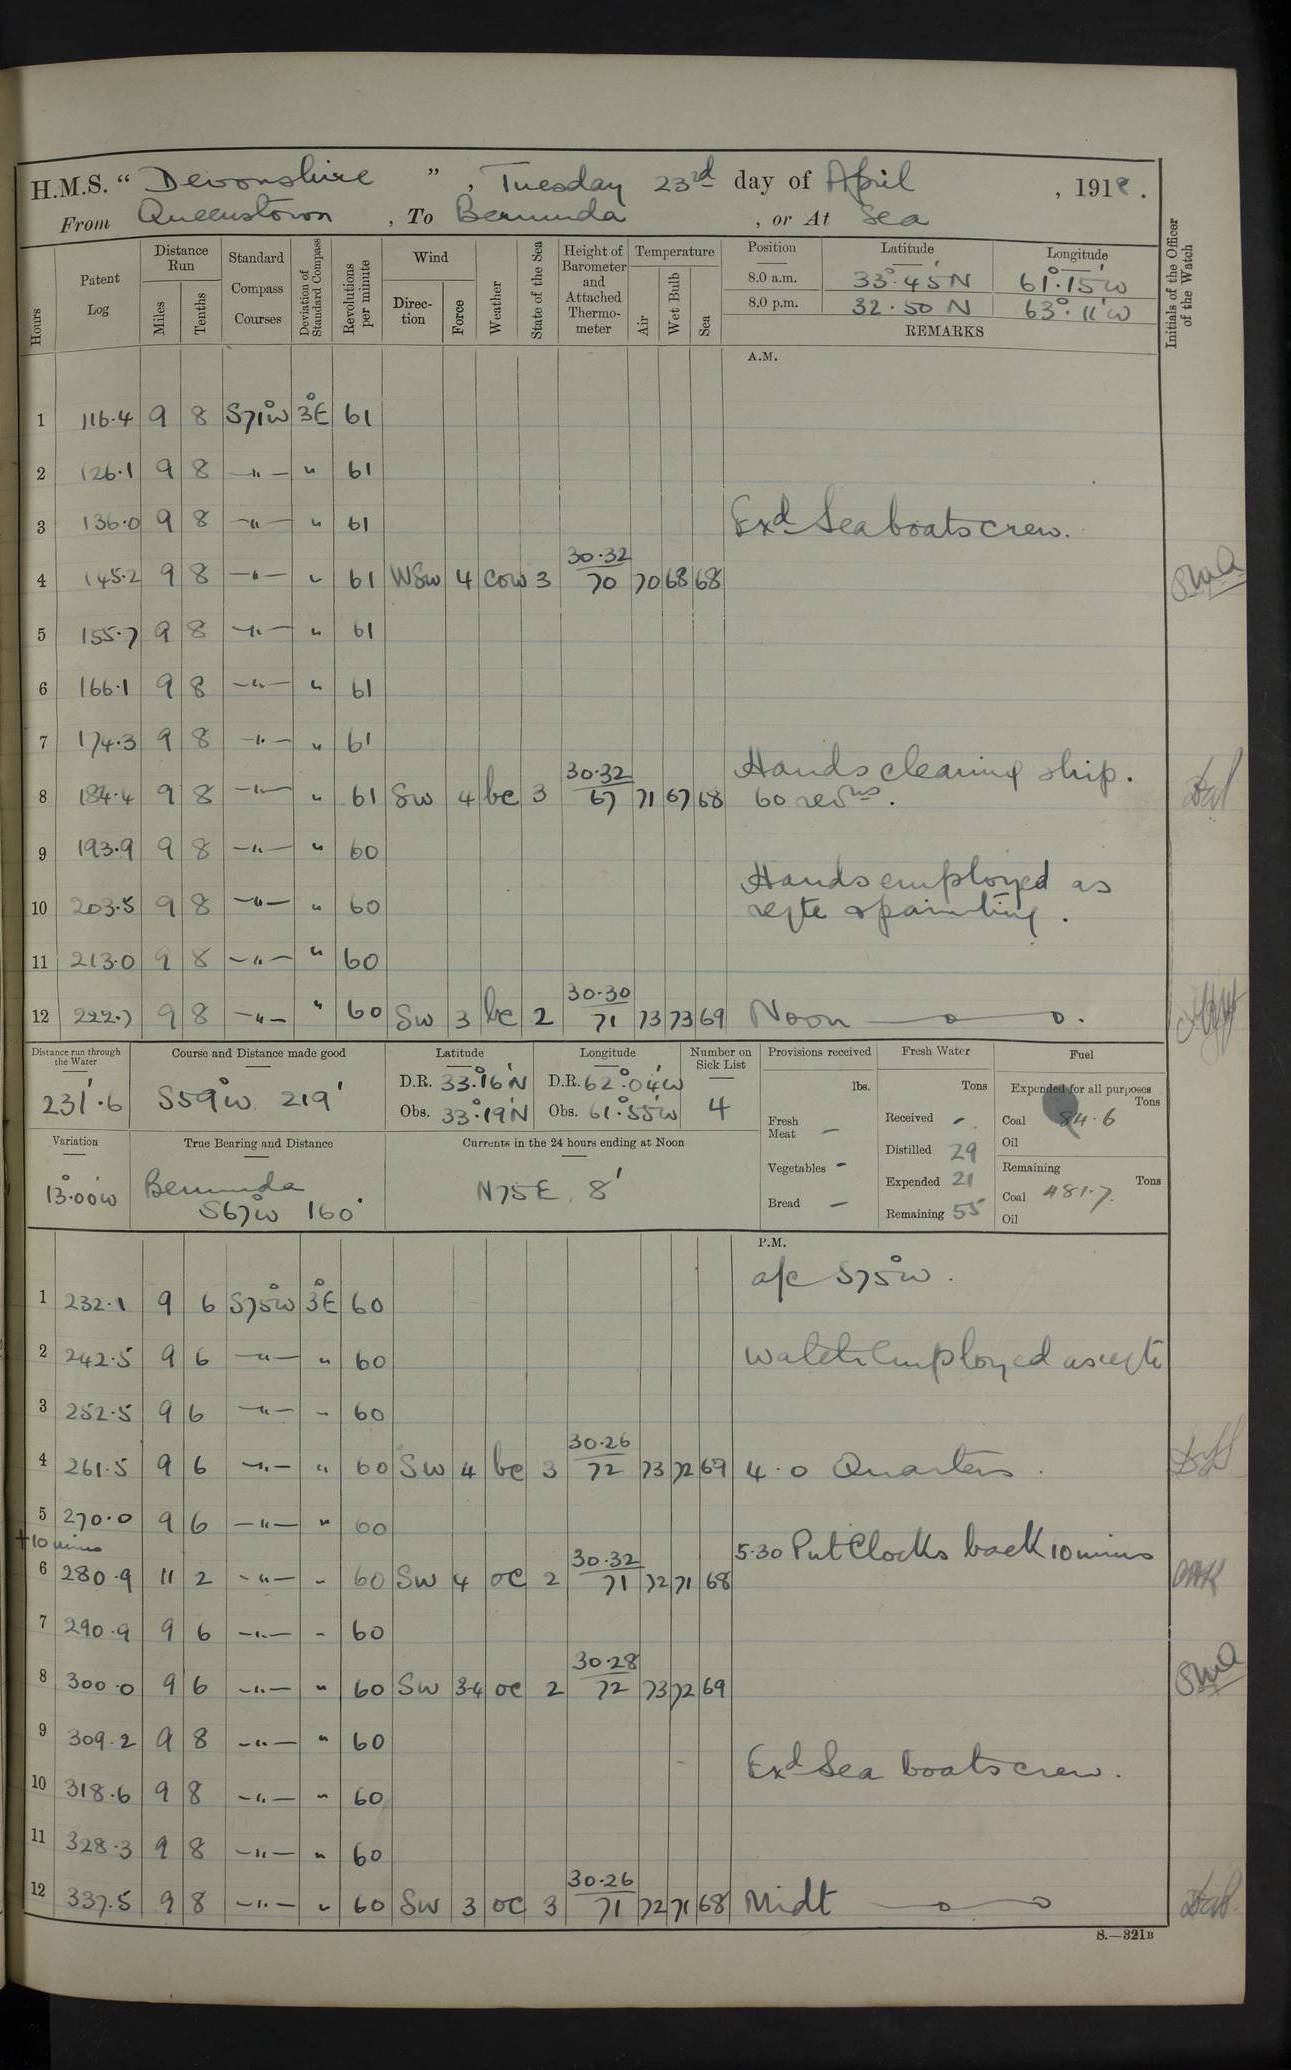 H.M.S. “ Devonshire ” , Tuesday 23rd day of April , 1918 .
From Queenstown , To Bermuda , or At Sea
Hours
Patent Log
Distance Run
Miles
Tenths
Standard Compass Courses
Deviation of Standard Compass
Revolutions per minute
Wind
Direc-tion
Force
Weather
State of the Sea
Height of Barometer and Attached Thermo-meter
Temperature
Air
Wet Bulb
Sea
Position Latitude Longitude
8.0 a.m. 33°.45'N 61°.15'W
8.0 p.m. 32.50 N 63°.11'W
REMARKS
Initials of the Officer of the Watch
A.M.
1 116.4 9 8 S71°W 3°E 61
2 126.1 9 8 —"— " 61
3 136.0 9 8 —"— " 61 Exd Sea boats crew.
4 145.2 9 8 —"— " 61 WSW 4 cow 3 30.32 70 70 68 68
5 155.7 9 8 —"— " 61
6 166.1 9 8 —"— " 61
7 174.3 9 8 —"— " 61
Hands cleaning ship.
8 184.4 9 8 —"— " 61 SW 4 bc 3 30.32 67 71 67 68 60 revns.
9 193.9 9 8 —"— " 60
Hands employed as
10 203.5 9 8 —"— " 60 reqte & painting.
11 213.0 9 8 —"— " 60
12 222.7 9 8 —"— " 60 SW 3 bc 2 30.30 71 73 73 69 Noon
Distance run through the Water
231'.6
Course and Distance made good
S59°W 219'
Latitude
D.R. 33°.16'N
Obs. 33°.19'N
Longitude
D.R. 62°.04'W
Obs. 61°.55'W
Number on Sick List
4
Variation
13°.00'W
True Bearing and Distance
Bermuda
S67°W 160'
Currents in the 24 hours ending at Noon
N75E 8'
Provisions received
lbs.
Fresh Meat —
Vegetables -
Bread —
Fresh Water
Tons
Received -
Distilled 29
Expended 21
Remaining 55
Fuel
Expended for all purposes
Tons
Coal 84.6
Oil
Remaining
Tons
Coal 481.7
Oil
P.M.
a/c S75°W.
1 232.1 9 6 S75°W 3°E 60
2 242.5 9 6 —"— " 60 Watch Employed as reqte
3 252.5 9 6 —"— " 60
4 261.5 9 6 —"— " 60 SW 4 bc 3 30.26 72 73 72 69 4.0 Quarters.
5 270.0 9 6 —"— " 60
+10 mins
5.30 Put Clocks back 10 mins
6 280.9 11 2 —"— " 60 SW 4 oc 2 30.32 71 72 71 68
7 290.9 9 6 —"— " 60
8 300.0 9 6 —"— " 60 SW 34 oc 2 30.28 72 73 72 69
9 309.2 9 8 —"— " 60
Exd Sea boats crew.
10 318.6 9 8 —"— " 60
11 328.3 9 8 —"— " 60
12 337.5 9 8 —"— " 60 SW 3 oc 3 30.26 71 72 71 68 Midt
S.—321B